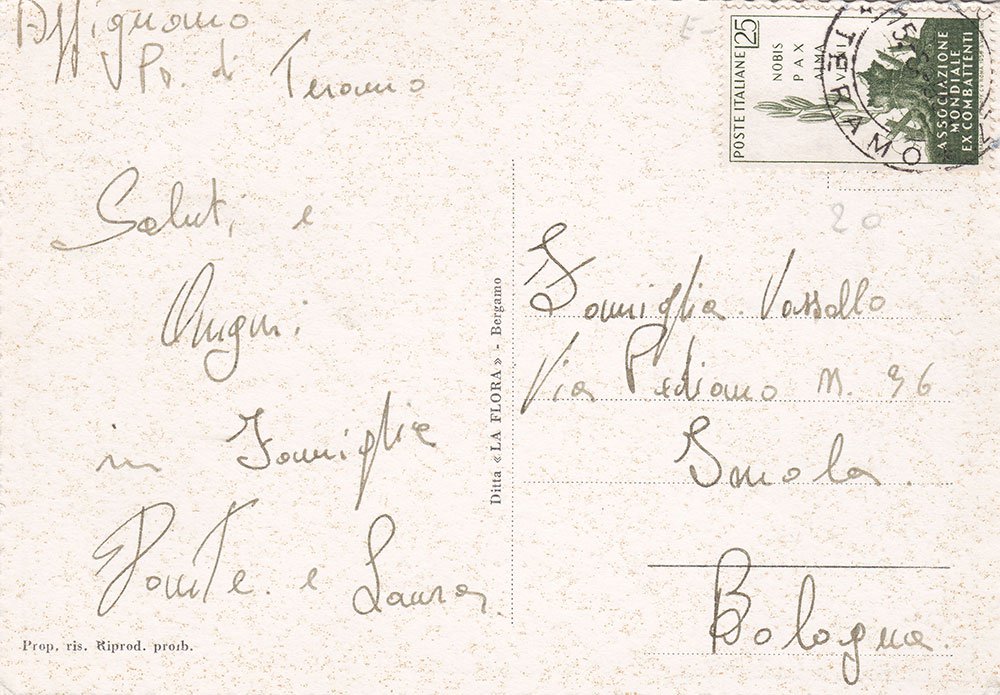 Affignano
Pr. di Teramo
Saluti e
Auguri
in Famiglia
e Laura
Prop. ris. Riprod. proib.
Ditta « LA FLORA » - Bergamo
POSTE ITALIANE 25
NOBIS
PAX
ALMA
VENI
ASSOCIAZIONE
MONDIALE
EX COMBATTENTI
TERAMO
20
Famiglia Vassallo
Via Pediano N. 36
Imola.
Bologna.